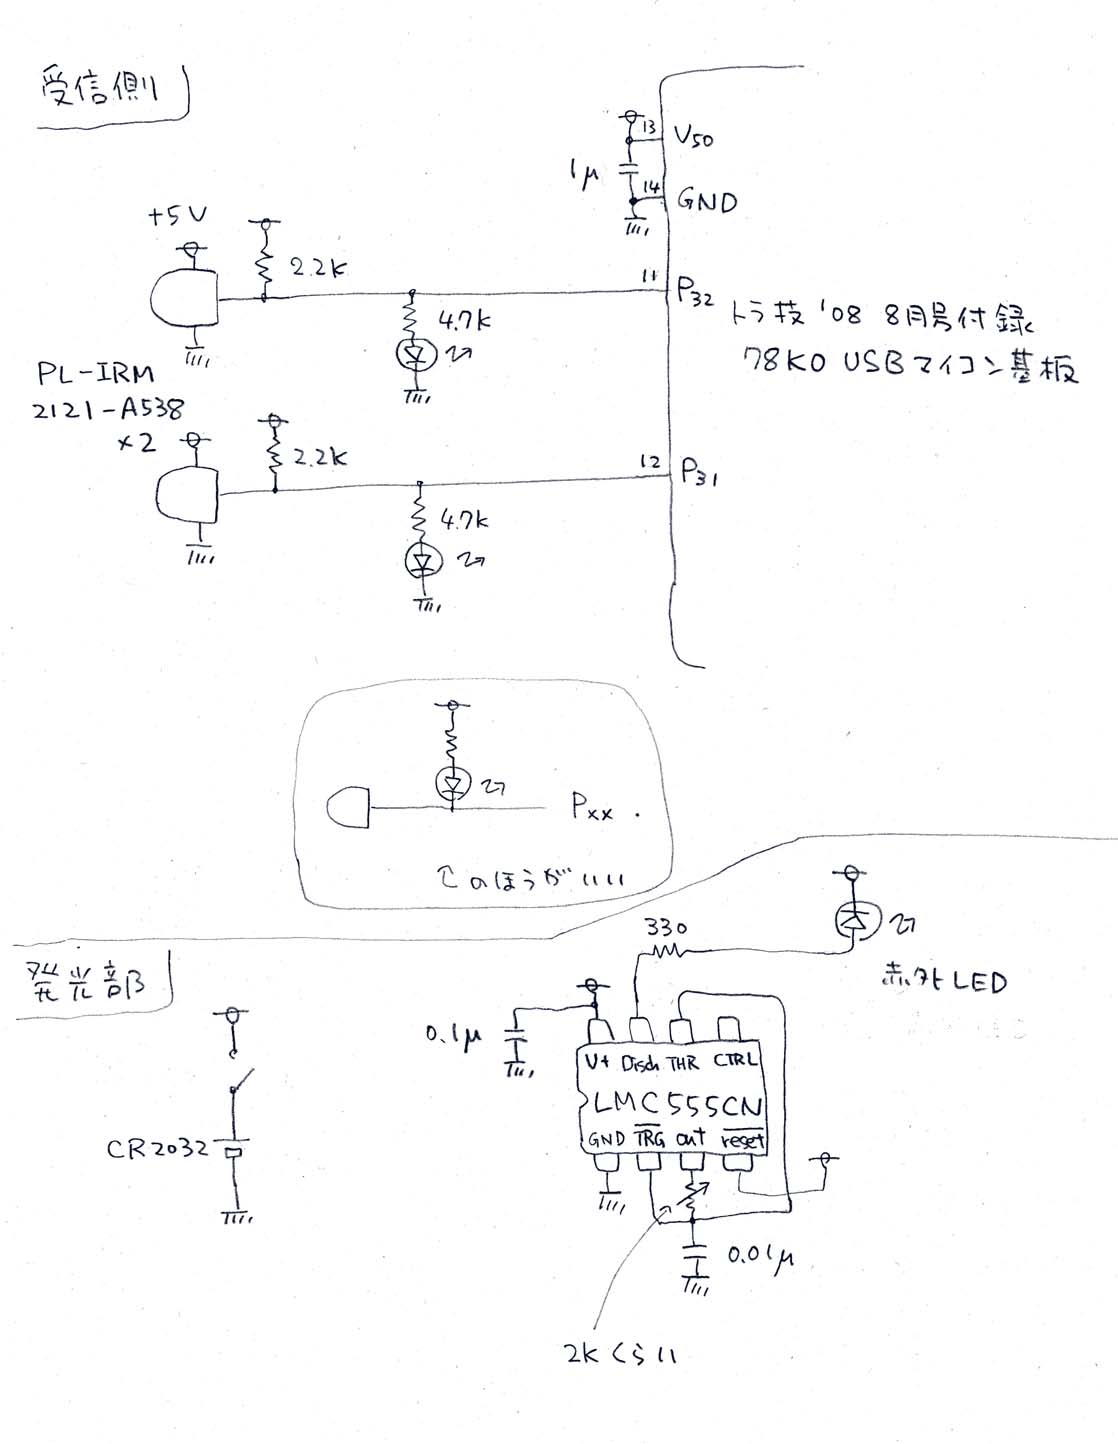 受信側
13
V50
1μ
14
GND
+5V
2.2K
11
P32
4.7K
トラ技 '08 8月号付録
78K0 USBマイコン基板
PL-IRM
2121-A538
×2
2.2K
12
P31
4.7K
Pxx.
このほうがいい
発光部
330
赤外LED
0.1μ
V+ Disch THR CTRL
LMC555CN
GND TRG out reset
CR2032
0.01μ
2Kくらい